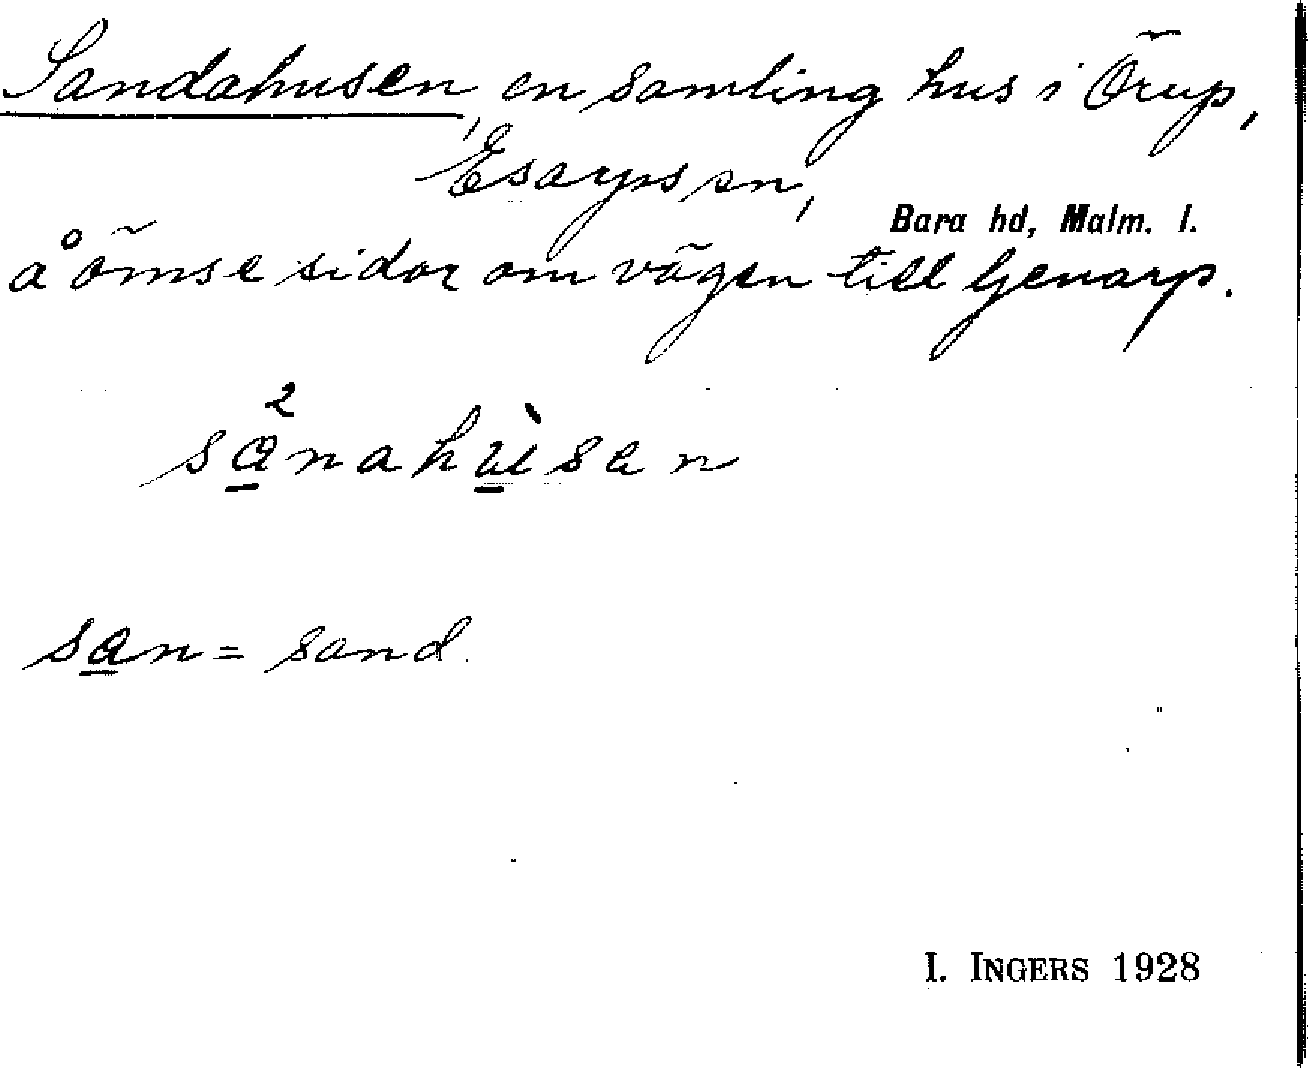 Sandahusen, en samling hus i Örup,
Esarps sn,
Bara hd, Malm. l.
å ömse sidor om vägen till Genarp.
sa²nahùsan
san = sand.
I. INGERS 1928